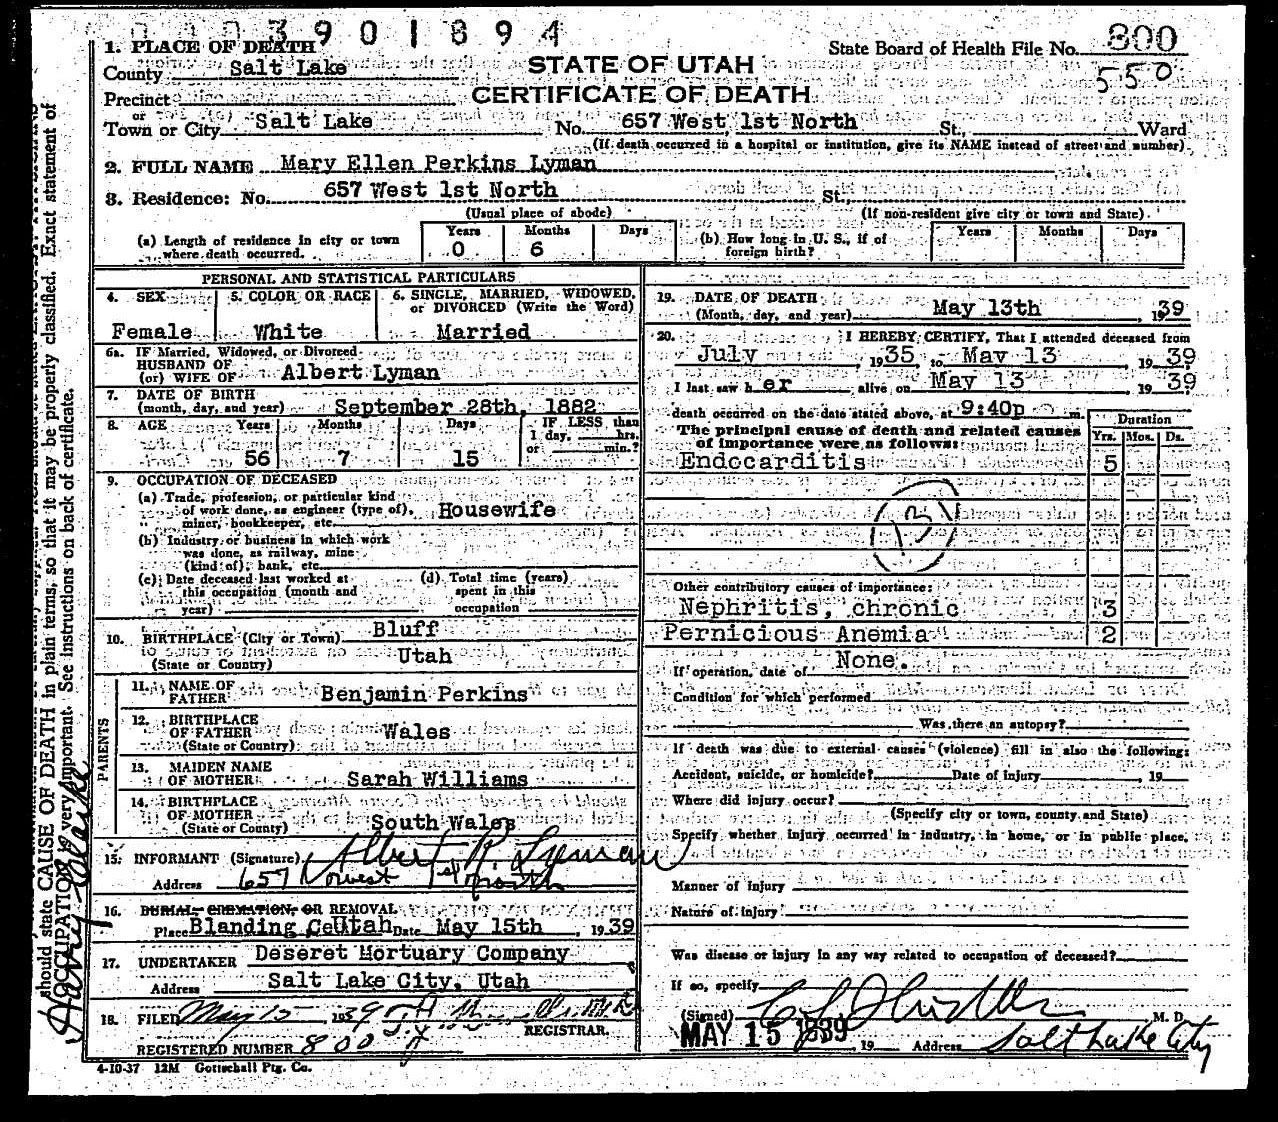 3901894
1. PLACE OF DEATH
State Board of Health File No. 800
County Salt Lake
STATE OF UTAH
550
Precinct
CERTIFICATE OF DEATH
or
Town or City Salt Lake No. 657 West 1st North St., Ward
(If death occurred in a hospital or institution, give its NAME instead of street and number)
2. FULL NAME Mary Ellen Perkins Lyman
3. Residence: No. 657 West 1st North St.,
(Usual place of abode) (If non-resident give city or town and State)
(a) Length of residence in city or town where death occurred. Years 0 Months 6 Days
(b) How long in U. S., if of foreign birth? Years Months Days
PERSONAL AND STATISTICAL PARTICULARS
4. SEX Female
5. COLOR OR RACE White
6. SINGLE, MARRIED, WIDOWED, or DIVORCED (Write the Word) Married
6a. IF Married, Widowed, or Divorced
HUSBAND OF
(or) WIFE OF Albert Lyman
7. DATE OF BIRTH
(month, day, and year) September 28th, 1882
8. AGE Years 56 Months 7 Days 15 IF LESS than 1 day, hrs. or min.?
9. OCCUPATION OF DECEASED
(a) Trade, profession, or particular kind
of work done, as engineer (type of), Housewife
miner, bookkeeper, etc.
(b) Industry or business in which work
was done, as railway, mine
(kind of), bank, etc.
(c) Date deceased last worked at this occupation (month and year)
(d) Total time (years) spent in this occupation
10. BIRTHPLACE (City or Town) Bluff
(State or Country) Utah
PARENTS
11. NAME OF FATHER Benjamin Perkins
12. BIRTHPLACE OF FATHER Wales
(State or Country)
13. MAIDEN NAME OF MOTHER Sarah Williams
14. BIRTHPLACE OF MOTHER
(State or County) South Wales
15. INFORMANT (Signature) Albert R. Lyman
Address 657 West 1st North
16. BURIAL, CREMATION, OR REMOVAL
Place Blanding Utah Date May 15th, 1939
17. UNDERTAKER Deseret Mortuary Company
Address Salt Lake City, Utah
18. FILED May 15 1939
REGISTRAR.
REGISTERED NUMBER 800
4-10-37 12M Gottschall Ptg. Co.
19. DATE OF DEATH
(Month, day, and year) May 13th, 1939
20. I HEREBY CERTIFY, That I attended deceased from
July 1935 to May 13 1939
I last saw her alive on May 13 1939
death occurred on the date stated above, at 9:40p m.
The principal cause of death and related causes
of importance were as follows:
Duration
Yrs. Mos. Ds.
Endocarditis 5
131
Other contributory causes of importance:
Nephritis, chronic 3
Pernicious Anemia 2
If operation, date of None.
Condition for which performed
Was there an autopsy?
If death was due to external causes (violence) fill in also the following:
Accident, suicide, or homicide? Date of injury 19
Where did injury occur?
(Specify city or town, county and State)
Specify whether injury occurred in industry, in home, or in public place.
Manner of injury
Nature of injury
Was disease or injury in any way related to occupation of deceased?
If so, specify
(Signed) M. D.
MAY 15 1939, 19 Address Salt Lake City
should state CAUSE OF DEATH in plain terms, so that it may be properly classified. Exact statement of
OCCUPATION is very important. See instructions on back of certificate.